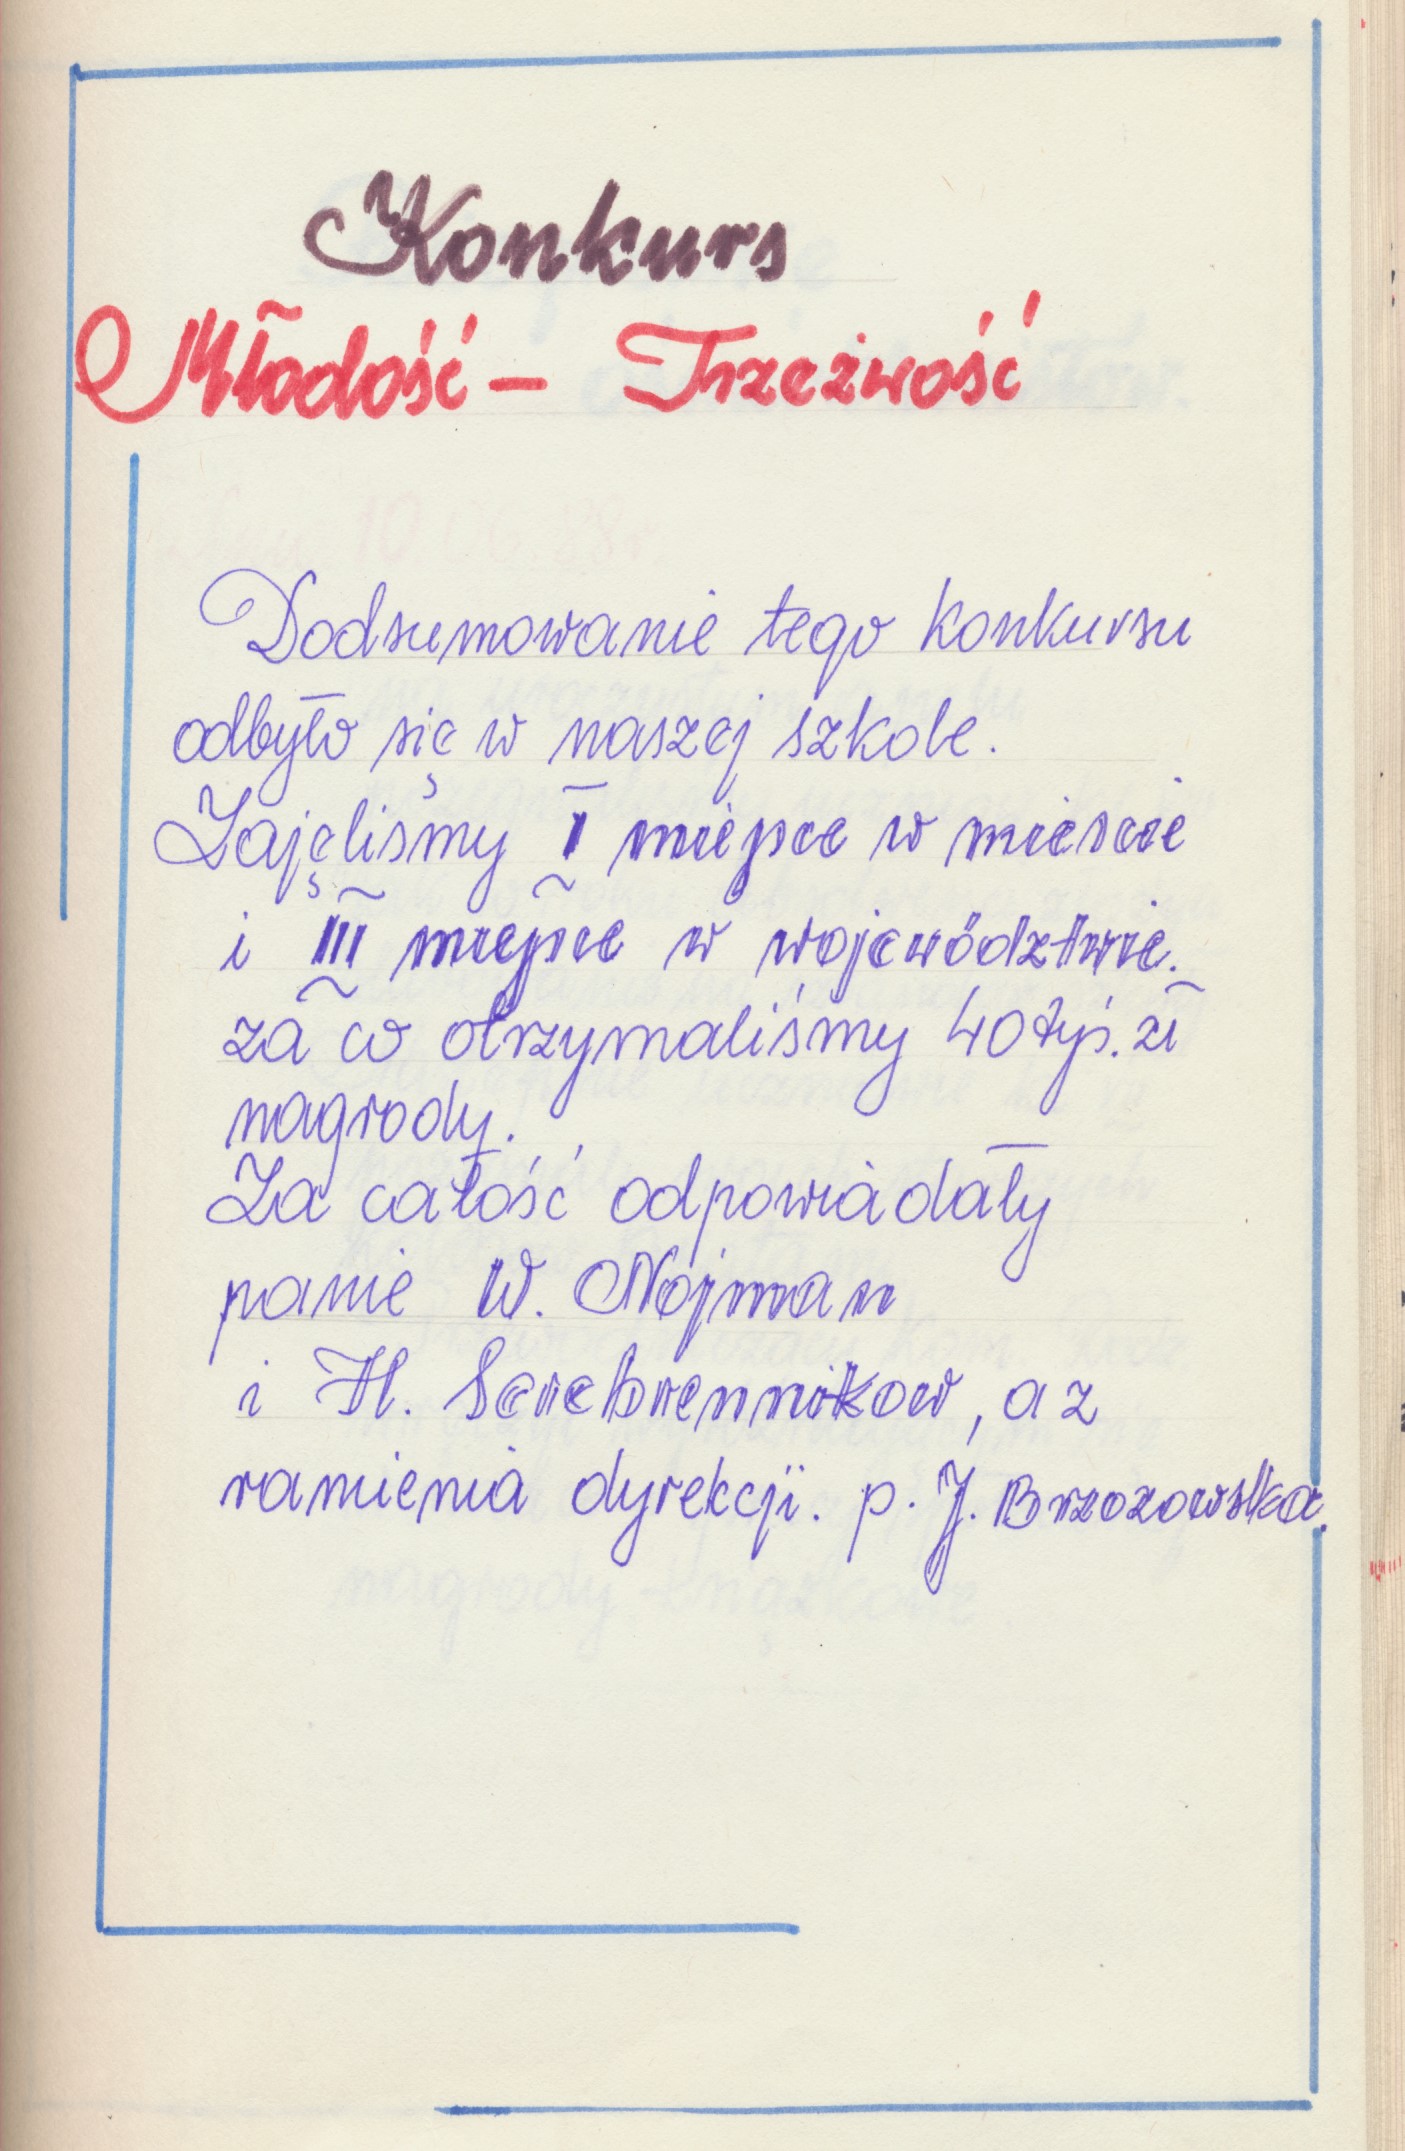 Konkurs
Młodość - Trzeźwość
Podsumowanie tego konkursu
odbyło się w naszej szkole.
Zajęliśmy I miejsce w mieście
i III miejsce w województwie.
za co otrzymaliśmy 40 tyś. zł
nagrody.
Za całość odpowiadały
panie W. Nojman
i H. Serebrennikow, a z
ramienia dyrekcji. p. J. Brzozowska.